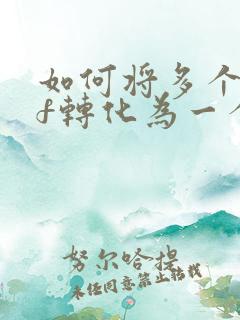 如何将多个
f轉化為一个
努尔哈提
未经同意禁止转载